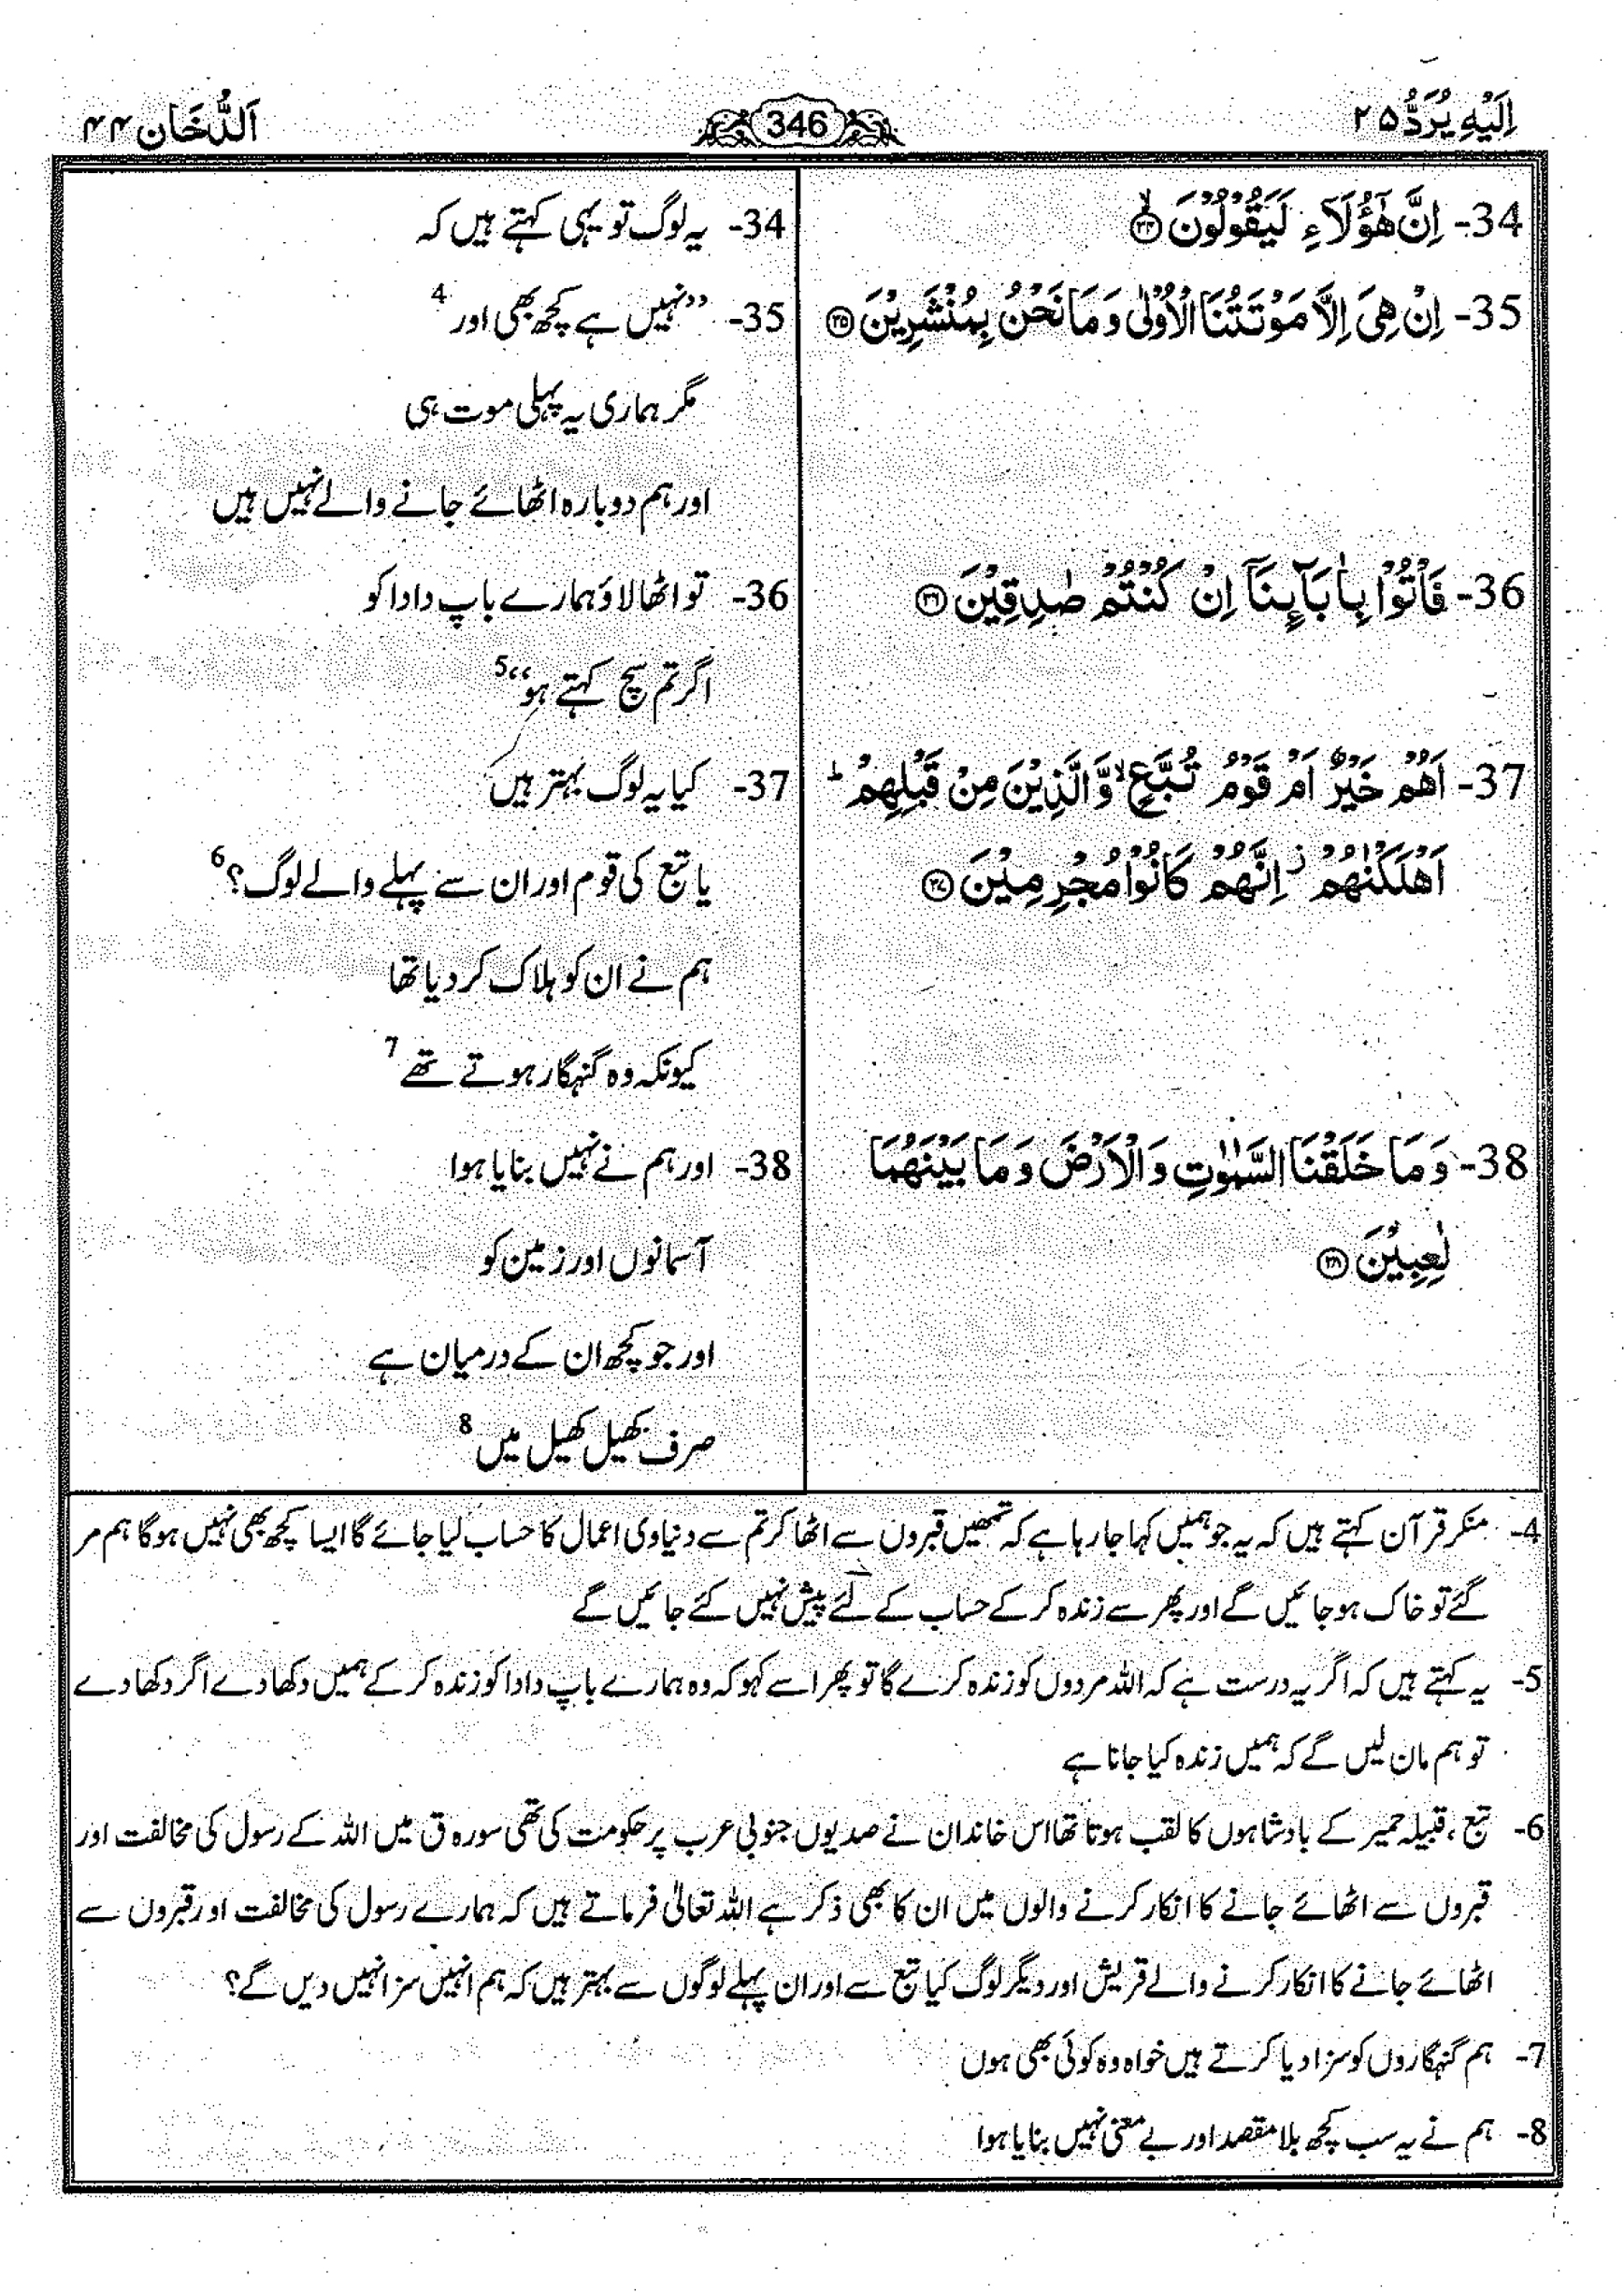 اِلَيْهِ يُرَدُّ ۲۵
346
اَلدُّخَان ۴۴
34- اِنَّ هٰٓؤُلَآءِ لَيَقُوْلُوْنَ ۙ‏﴿۳۴﴾
35- اِنْ هِىَ اِلَّا مَوْتَتُنَا الْاُوْلٰى وَمَا نَحْنُ بِمُنْشَرِيْنَ ﴿۳۵﴾
36- فَاْتُوْا بِاٰبَآئِنَآ اِنْ كُنْتُمْ صٰدِقِيْنَ ﴿۳۶﴾
37- اَهُمْ خَيْرٌ اَمْ قَوْمُ تُبَّعٍ ۙ وَّالَّذِيْنَ مِنْ قَبْلِهِمْ ؕ
اَهْلَكْنٰهُمْ ۫ اِنَّهُمْ كَانُوْا مُجْرِمِيْنَ ﴿۳۷﴾
38- وَمَا خَلَقْنَا السَّمٰوٰتِ وَالْاَرْضَ وَمَا بَيْنَهُمَا
لٰعِبِيْنَ ﴿۳۸﴾
34- یہ لوگ تو یہی کہتے ہیں کہ
35- ”نہیں ہے کچھ بھی اور 4
مگر ہماری یہ پہلی موت ہی
اور ہم دوبارہ اٹھائے جانے والے نہیں ہیں
36- تو اٹھا لاؤ ہمارے باپ دادا کو
اگر تم سچ کہتے ہو“ 5
37- کیا یہ لوگ بہتر ہیں
یا تبع کی قوم اور ان سے پہلے والے لوگ؟ 6
ہم نے ان کو ہلاک کر دیا تھا
کیونکہ وہ گنہگار ہوتے تھے 7
38- اور ہم نے نہیں بنایا ہوا
آسمانوں اور زمین کو
اور جو کچھ ان کے درمیان ہے
صرف کھیل کھیل میں 8
4- منکر قرآن کہتے ہیں کہ یہ جو ہمیں کہا جا رہا ہے کہ تمھیں قبروں سے اٹھا کر تم سے دنیاوی اعمال کا حساب لیا جائے گا ایسا کچھ بھی نہیں ہوگا ہم مر
گئے تو خاک ہو جائیں گے اور پھر سے زندہ کر کے حساب کے لئے پیش نہیں کئے جائیں گے
5- یہ کہتے ہیں کہ اگر یہ درست ہے کہ اللہ مردوں کو زندہ کرے گا تو پھر اسے کہو کہ وہ ہمارے باپ دادا کو زندہ کر کے ہمیں دکھا دے اگر دکھا دے
تو ہم مان لیں گے کہ ہمیں زندہ کیا جانا ہے
6- تبع، قبیلہ حمیر کے بادشاہوں کا لقب ہوتا تھا اس خاندان نے صدیوں جنوبی عرب پر حکومت کی تھی سورہ ق میں اللہ کے رسول کی مخالفت اور
قبروں سے اٹھائے جانے کا انکار کرنے والوں میں ان کا بھی ذکر ہے اللہ تعالٰی فرماتے ہیں کہ ہمارے رسول کی مخالفت اور قبروں سے
اٹھائے جانے کا انکار کرنے والے قریش اور دیگر لوگ کیا تبع سے اور ان پہلے لوگوں سے بہتر ہیں کہ ہم انہیں سزا نہیں دیں گے؟
7- ہم گنہگاروں کو سزا دیا کرتے ہیں خواہ وہ کوئی بھی ہوں
8- ہم نے یہ سب کچھ بلا مقصد اور بے معنی نہیں بنایا ہوا